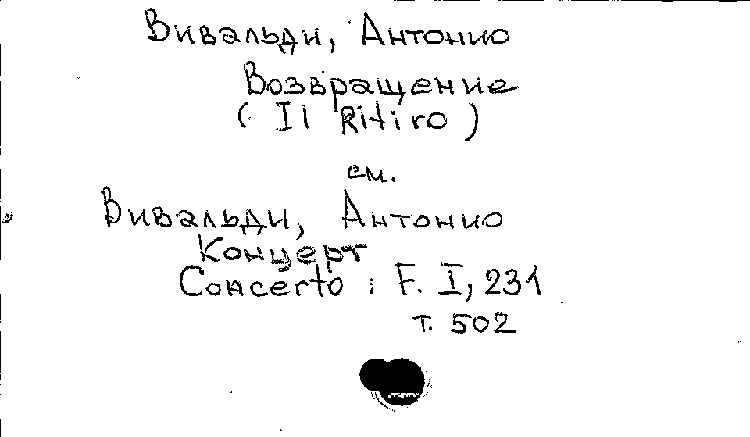 Вивальди, Антонио
Возвращение
( Il Ritiro )
см.
Вивальди, Антонио
Концерт
Concerto : F. I, 231
т. 502